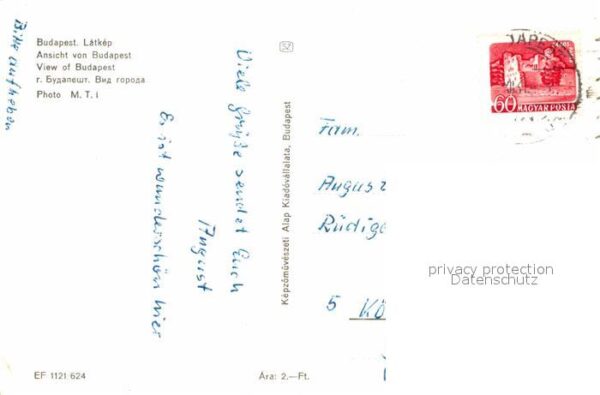 Budapest. Látkép
Ansicht von Budapest
View of Budapest
г. Будапешт. Вид города
Photo M. T. i
Bitte aufheben
Viele Grüße sendet Euch
August
Es ist wunderschön hier
Képzőművészeti Alap Kiadóvállalata, Budapest
60
MAGYAR POSTA
Fam.
Augus
Rüdige
5 KÖ
privacy protection
Datenschutz
EF 1121 624
Ára: 2.—Ft.